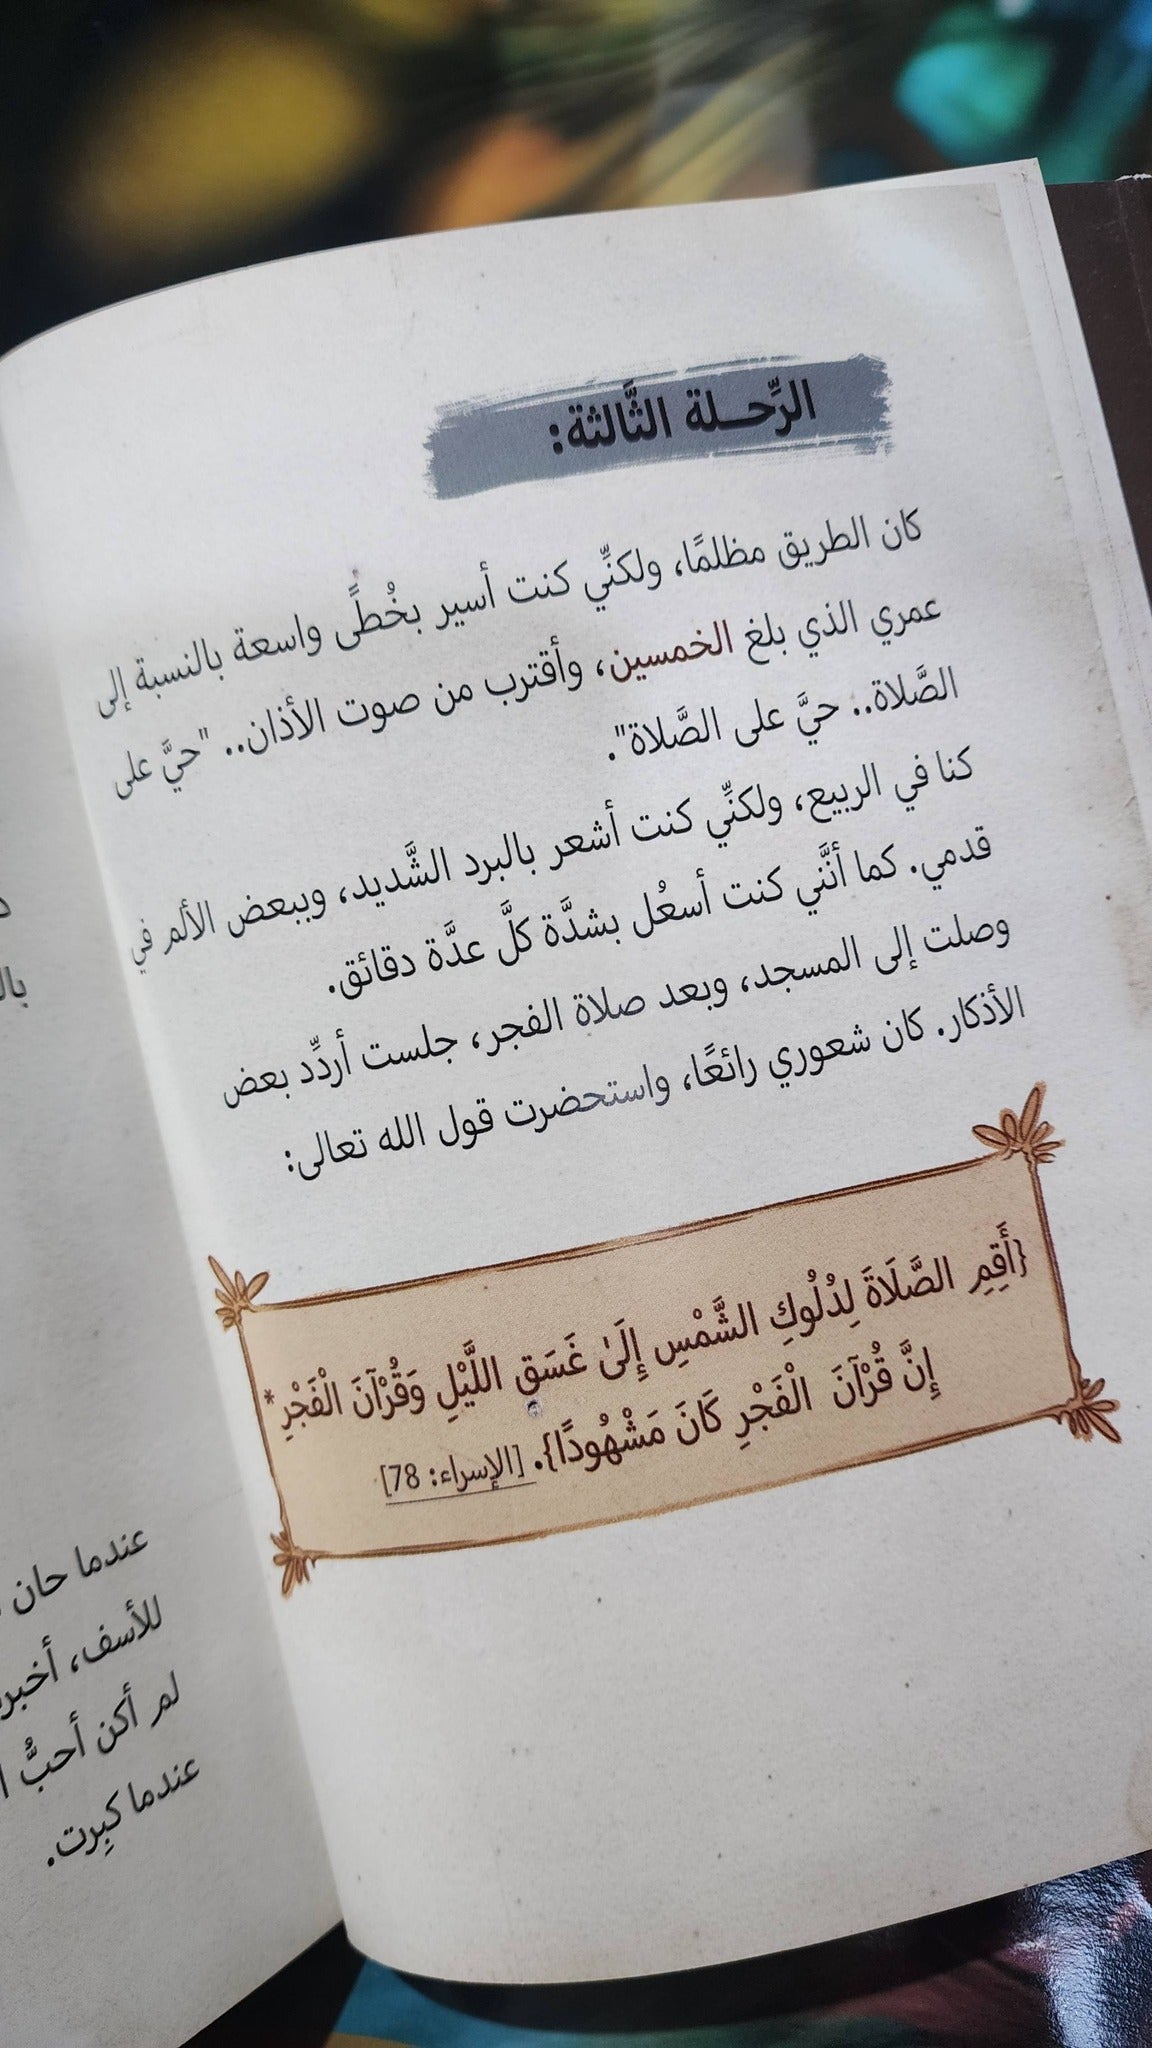 الرِّحـــلة الثَّالثة:
كان الطريق مظلمًا، ولكنِّي كنت أسير بخُطىً واسعة بالنسبة إلى
عمري الذي بلغ الخمسين، وأقترب من صوت الأذان.. "حيَّ على
الصَّلاة.. حيَّ على الصَّلاة".
كنا في الربيع، ولكنِّي كنت أشعر بالبرد الشَّديد، وببعض الألم في
قدمي. كما أنَّني كنت أسعُل بشدَّة كلَّ عدَّة دقائق.
وصلت إلى المسجد، وبعد صلاة الفجر، جلست أردِّد بعض
الأذكار. كان شعوري رائعًا، واستحضرت قول الله تعالى:
{أَقِمِ الصَّلَاةَ لِدُلُوكِ الشَّمْسِ إِلَىٰ غَسَقِ اللَّيْلِ وَقُرْآنَ الْفَجْرِ*
إِنَّ قُرْآنَ الْفَجْرِ كَانَ مَشْهُودًا}. [الإسراء: 78]
عندما حان
للأسف، أخبر
لم أكن أحبُّ
عندما كبِرت.